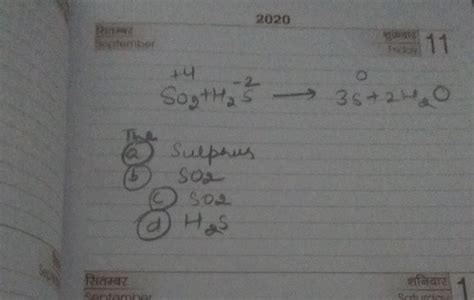 2020
सितम्बर
September
शुक्रवार
Friday
11
+4 -2 0
SO2+H2S → 3S+2H2O
The
a Sulphur
b SO2
c SO2
d H2S
सितम्बर
September
शनिवार
Saturday
1